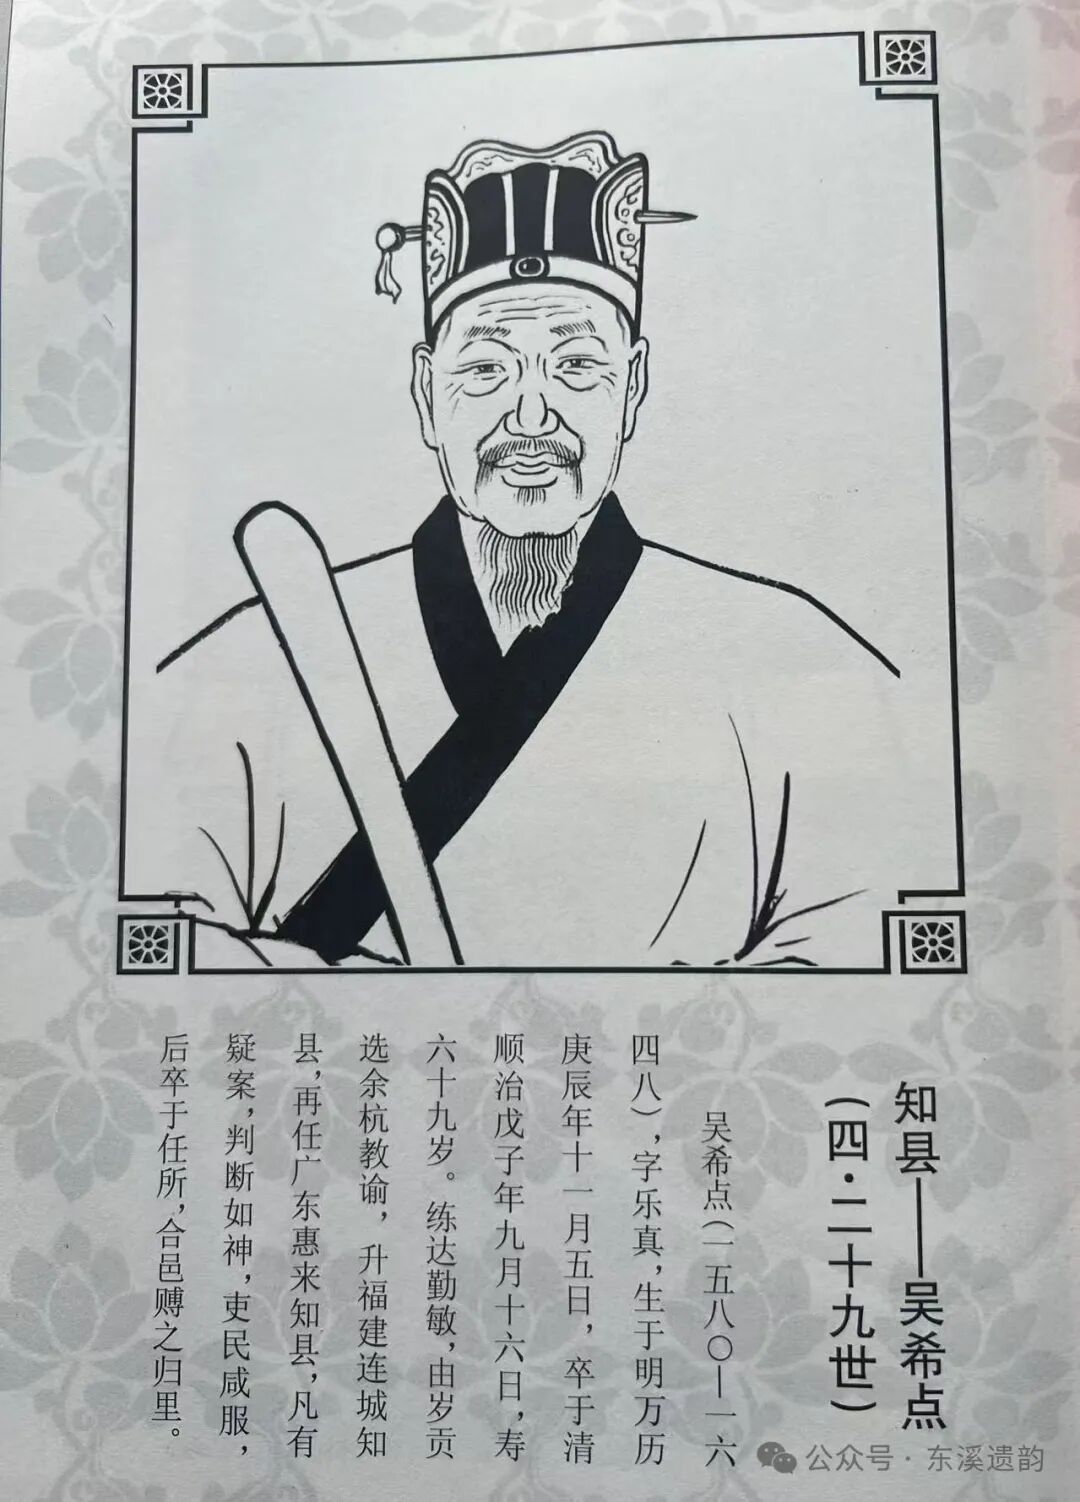 知县——吴希点
（四·二十九世）
吴希点（一五八〇—一六
四八），字乐真，生于明万历
庚辰年十一月五日，卒于清
顺治戊子年九月十六日，寿
六十九岁。练达勤敏，由岁贡
选余杭教谕，升福建连城知
县，再任广东惠来知县，凡有
疑案，判断如神，吏民咸服，
后卒于任所，合邑赙之归里。
公众号·东溪遗韵